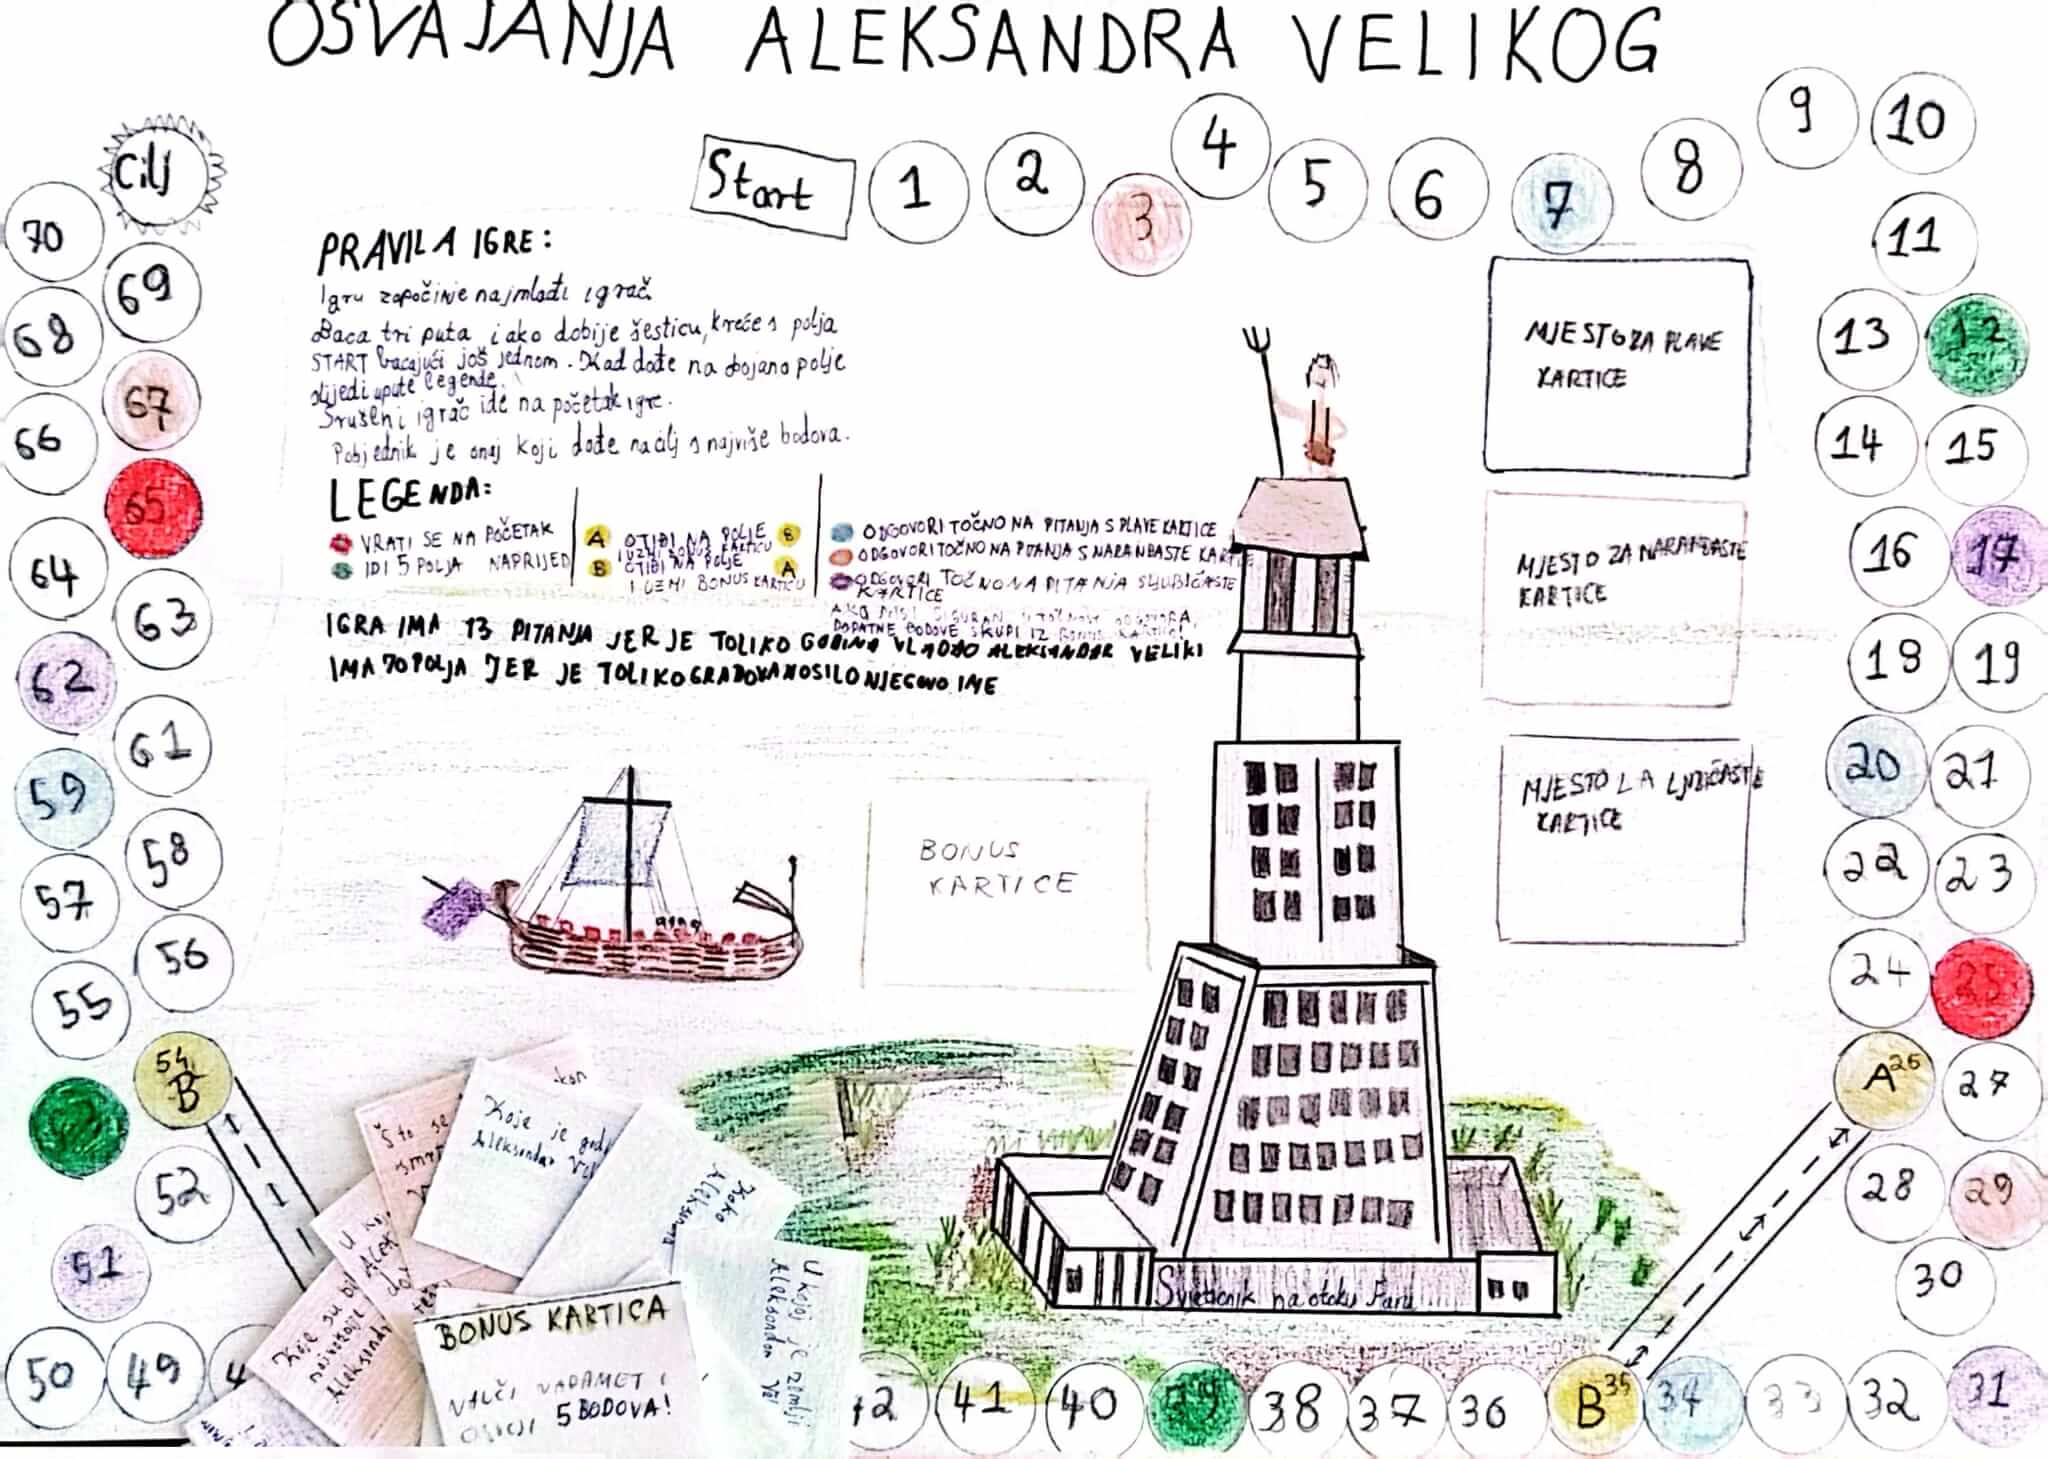 OSVAJANJA ALEKSANDRA VELIKOG
Start
1
2
3
4
5
6
7
8
9
10
11
12
13
14
15
16
17
18
19
20
21
22
23
24
25
A 26
27
28
29
30
31
32
33
34
B 35
36
37
38
39
40
41
49
50
51
52
54 B
55
56
57
58
59
61
62
63
64
65
66
67
68
69
70
Cilj
PRAVILA IGRE:
Igru započinje najmlađi igrač.
Baca tri puta i ako dobije šesticu, kreće s polja
START bacajući još jednom. Kad dođe na obojano polje
slijedi upute legende.
Srušeni igrač ide na početak igre.
Pobjednik je onaj koji dođe na cilj s najviše bodova.
LEGENDA:
VRATI SE NA POČETAK
IDI 5 POLJA NAPRIJED
A OTIĐI NA POLJE B
I UZMI BONUS KARTICU
B OTIĐI NA POLJE A
I UZMI BONUS KARTICU
ODGOVORI TOČNO NA PITANJA S PLAVE KARTICE
ODGOVORI TOČNO NA PITANJA S NARANČASTE KARTICE
ODGOVORI TOČNO NA PITANJA S LJUBIČASTE
KARTICE
AKO NISI SIGURAN U TOČNOST ODGOVORA,
DODATNE BODOVE SKUPI IZ BONUS KARTICE!
IGRA IMA 13 PITANJA JER JE TOLIKO GODINA VLADAO ALEKSANDAR VELIKI
IMA 70 POLJA JER JE TOLIKO GRADOVA NOSILO NJEGOVO IME
MJESTO ZA PLAVE
KARTICE
MJESTO ZA NARANČASTE
KARTICE
MJESTO ZA LJUBIČASTE
KARTICE
BONUS
KARTICE
Svjetionik na otoku Faru
Što se
Koje je god
Aleksandar Vel
Kako
Aleksandar
U koj
Alek
Koje su bil
najveće
Aleksandr
U kojoj je zemlji
Aleksandar Vel
BONUS KARTICA
5 BODOVA!